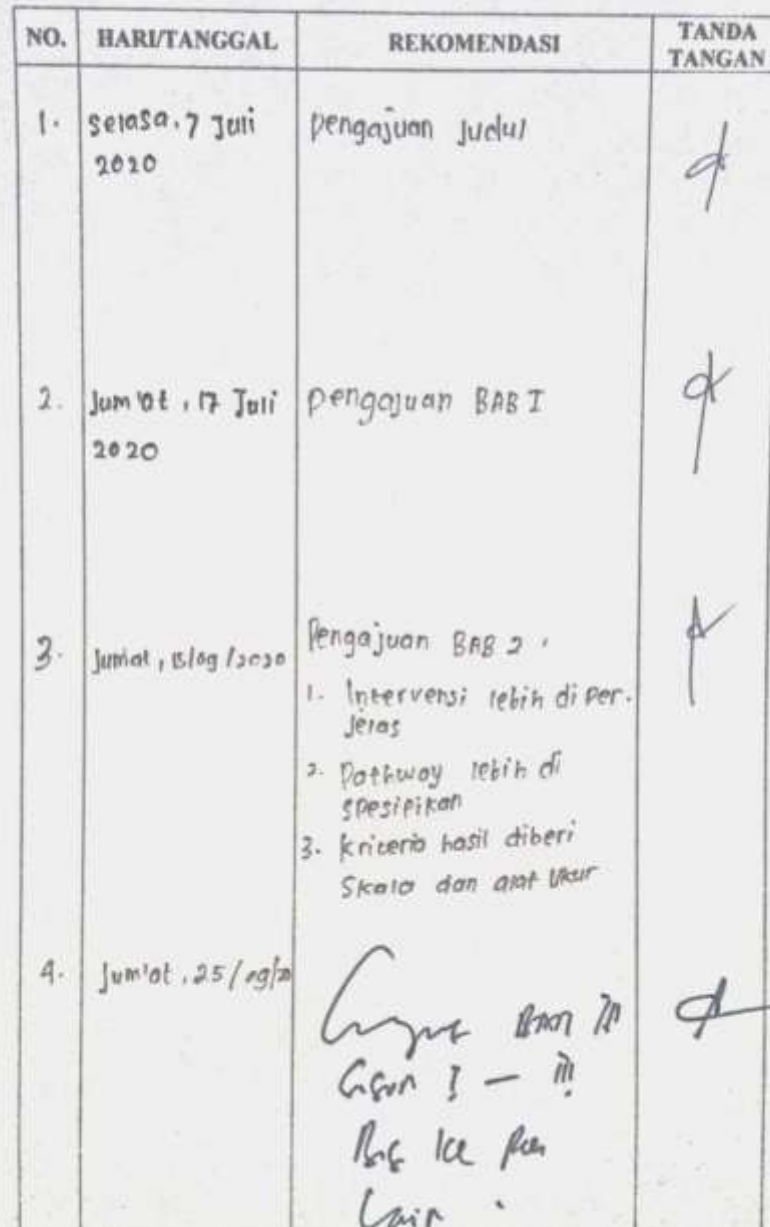 NO. HARI/TANGGAL REKOMENDASI TANDA TANGAN
1. Selasa, 7 Juli 2020 Pengajuan Judul
2. Jum'at, 17 Juli 2020 Pengajuan BAB I
3. Jumat, /09/2020 Pengajuan BAB 2.
1. Intervensi lebih di per.
jelas
2. Pathway lebih di
spesipikan
3. Kriteria hasil diberi
Skala dan alat Ukur
4. Jum'at, 25/09/20